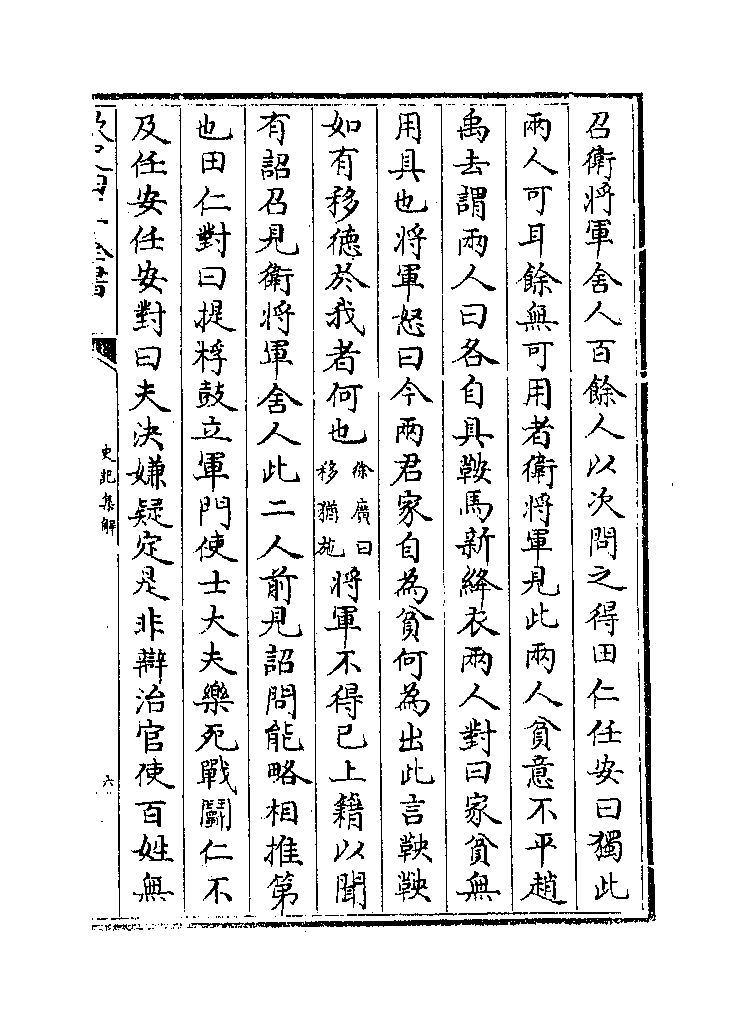 召衛將軍舍人百餘人以次問之得田仁任安曰獨此
兩人可耳餘無可用者衛將軍見此兩人貧意不平趙
禹去謂兩人曰各自具鞍馬新絳衣兩人對曰家貧無
用具也將軍怒曰今兩君家自為貧何為出此言鞅鞅
如有移德於我者何也徐廣曰移猶施將軍不得已上籍以聞
有詔召見衛將軍舍人此二人前見詔問能略相推第
也田仁對曰提桴鼓立軍門使士大夫樂死戰鬭仁不
及任安任安對曰夫決嫌疑定是非辯治官使百姓無
全書
史記集解
六